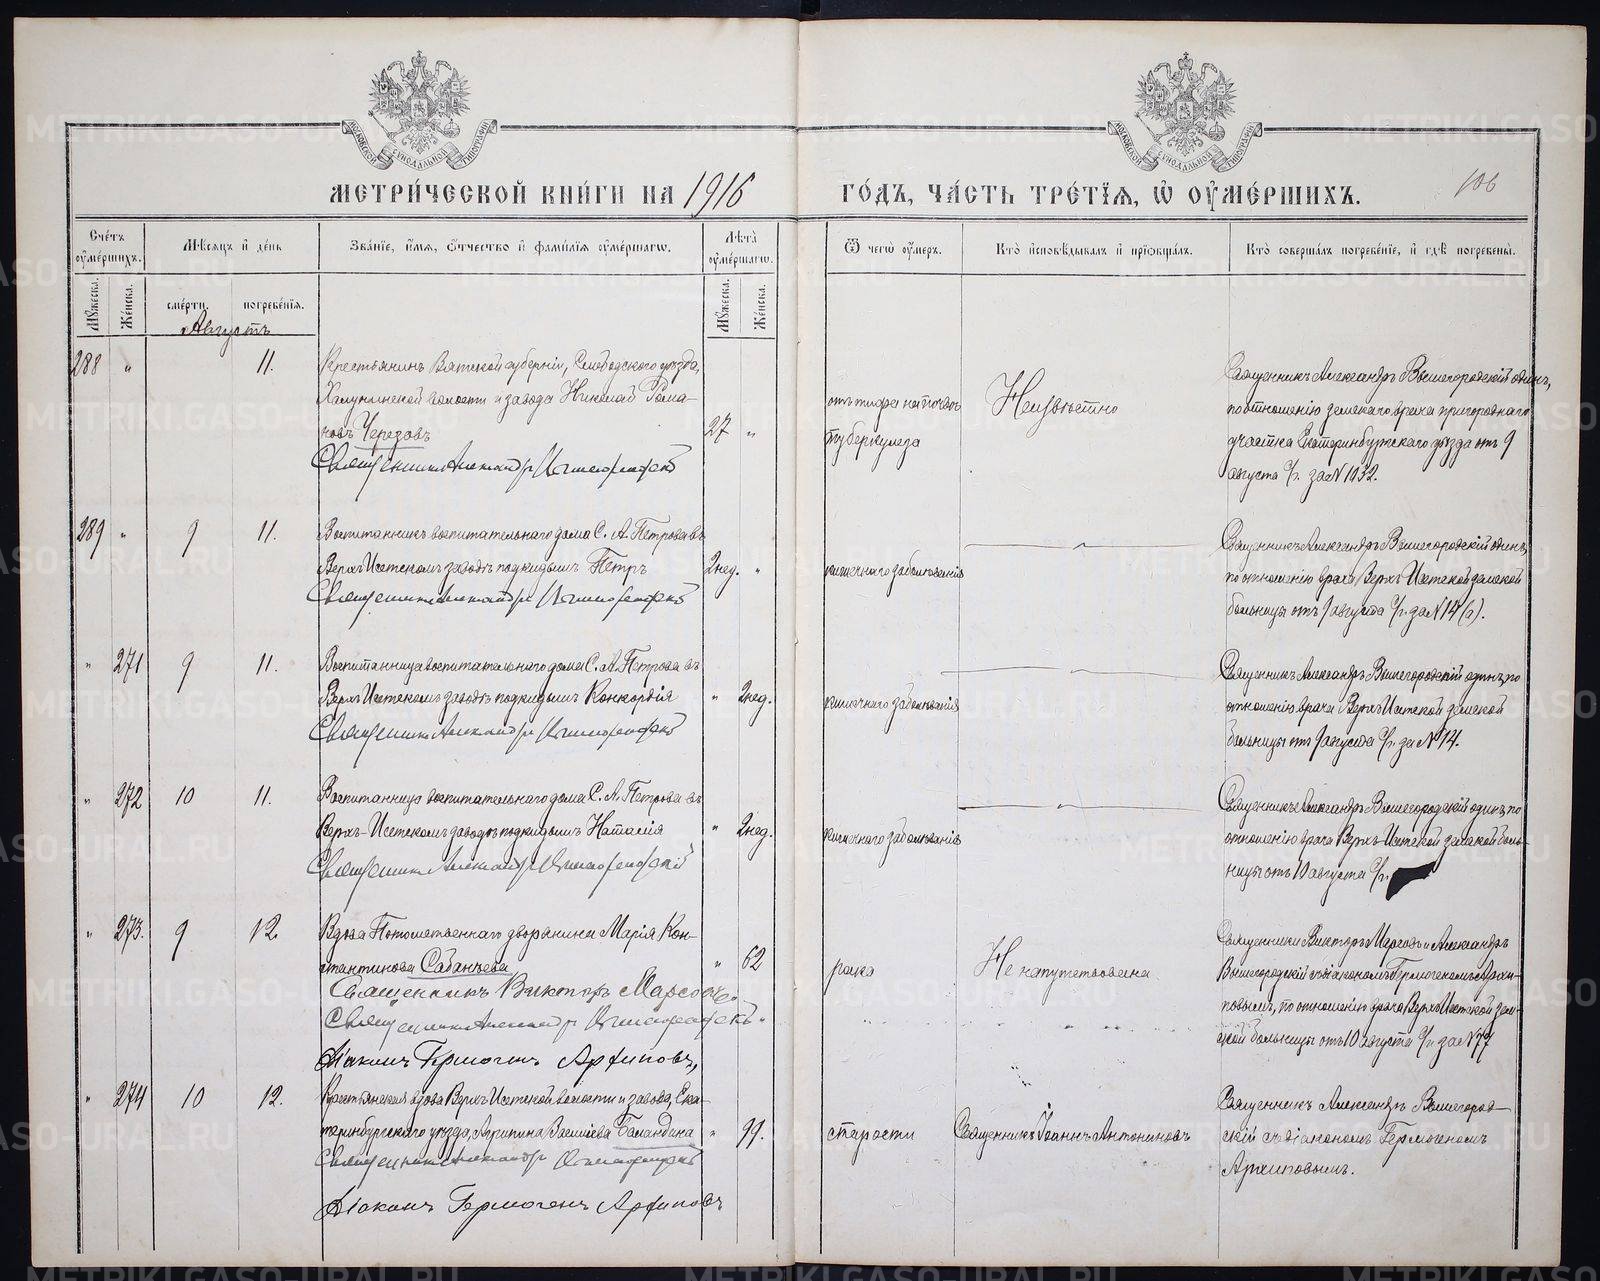 МОСКОВСКОЙ СѴНОДАЛЬНОЙ ТИПОГРАФІИ
МОСКОВСКОЙ СѴНОДАЛЬНОЙ ТИПОГРАФІИ
МЕТРИ́ЧЕСКОЙ КНИ́ГИ НА 1916 ГО́ДЪ, ЧА́СТЬ ТРЕ́ТЇѦ, Ѡ҆ ОУ҆МЕ́РШИХЪ.
106
Сче́тъ оу҆ме́ршихъ.
Мѣ́сѧцъ и҆ де́нь
Зва́нїе, и҆́мѧ, ѻ҆́тчество и҆ фами́лїѧ оу҆ме́ршагѡ.
Лѣ́та оу҆ме́ршагѡ.
Ѿ чегѡ̀ оу҆́меръ.
Кто̀ и҆сповѣ́дывалъ и҆ прїѡбща́лъ.
Кто̀ соверша́лъ погребе́нїе, и҆ гдѣ̀ погребены̀.
Мꙋ́жеска.
Же́нска.
сме́рти.
погребе́нїѧ.
Мꙋ́жеска.
Же́нска.
Августъ
288 " 11.
Крестьянинъ Вятской губерніи, Слободского уѣзда,
Холуницкой волости и завода Николай Рома-
новъ Черезовъ
27 "
Священникъ Александръ Вышегородскій
отъ тифа на почвѣ
туберкулеза
Неизвѣстно
Священникъ Александръ Вышегородскій одинъ,
по отношенію земскаго врача пригороднаго
участка Екатеринбургскаго уѣзда отъ 9
августа с/г. за № 1032.
289 " 9 11.
Воспитанникъ воспитательнаго дома С. А. Петрова въ
Верхъ Исетскомъ заводѣ подкидышъ Петръ
2 нед. "
Священникъ Александръ Вышегородскій
кишечнаго заболѣванія
Священникъ Александръ Вышегородскій одинъ,
по отношенію врача Верхъ Исетской земской
больницы отъ 9 августа с/г. за № 14 (а).
" 271 9 11.
Воспитанница воспитательнаго дома С. А. Петрова въ
Верхъ Исетскомъ заводѣ подкидышъ Конкордія
" 2 нед.
Священникъ Александръ Вышегородскій
кишечнаго заболѣванія
Священникъ Александръ Вышегородскій одинъ, по
отношенію врача Верхъ Исетской земской
больницы отъ 9 августа с/г. за № 14.
" 272 10 11.
Воспитанница воспитательнаго дома С. А. Петрова въ
Верхъ-Исетскомъ заводѣ подкидышъ Наталія
" 2 нед.
Священникъ Александръ Вышегородскій
кишечнаго заболѣванія
Священникъ Александръ Вышегородскій одинъ, по
отношенію врача Верхъ-Исетской земской боль-
ницы отъ 10 августа с/г.
" 273. 9 12.
Вдова Потомственнаго дворянина Марія Кон-
стантинова Сабанѣева
" 62
Священникъ Викторъ
Священникъ Александръ Вышегородскій
Діаконъ Гермогенъ Архиповъ
рака
Не напутствована
Священники Викторъ и Александръ
Вышегородскій съ діакономъ Гермогеномъ Архи-
повымъ, по отношенію врача Верхъ Исетской зем-
ской больницы отъ 10 августа с/г. за № 77
" 274 10 12.
Крестьянская вдова Верхъ Исетской волости и завода, Ека-
теринбургскаго уѣзда, Агрипина Васильева Баландина
" 99.
Священникъ Александръ Вышегородскій
Діаконъ Гермогенъ Архиповъ
старости
Священникъ Іоаннъ Антониновъ
Священникъ Александръ Вышегород-
скій съ діакономъ Гермогеномъ
Архиповымъ.
METRIKI.GASO-URAL.RU